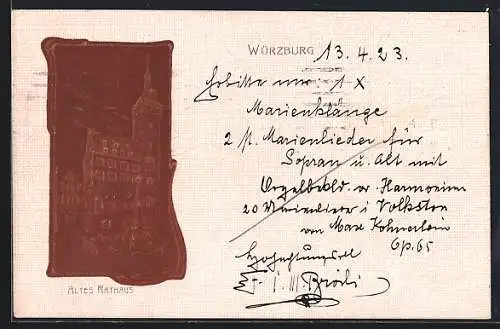 WÜRZBURG 13.4.23.
Erbitte nur: 1 X
Marienklänge
2 st. Marienlieder für
Sopran u. Alt mit
Orgelbegl. or. Harmonium
20 Marienlieder i. Volkston
von Max Kohnerlein
Op. 65
Hochachtungsvoll
Broili
ALTES RATHAUS